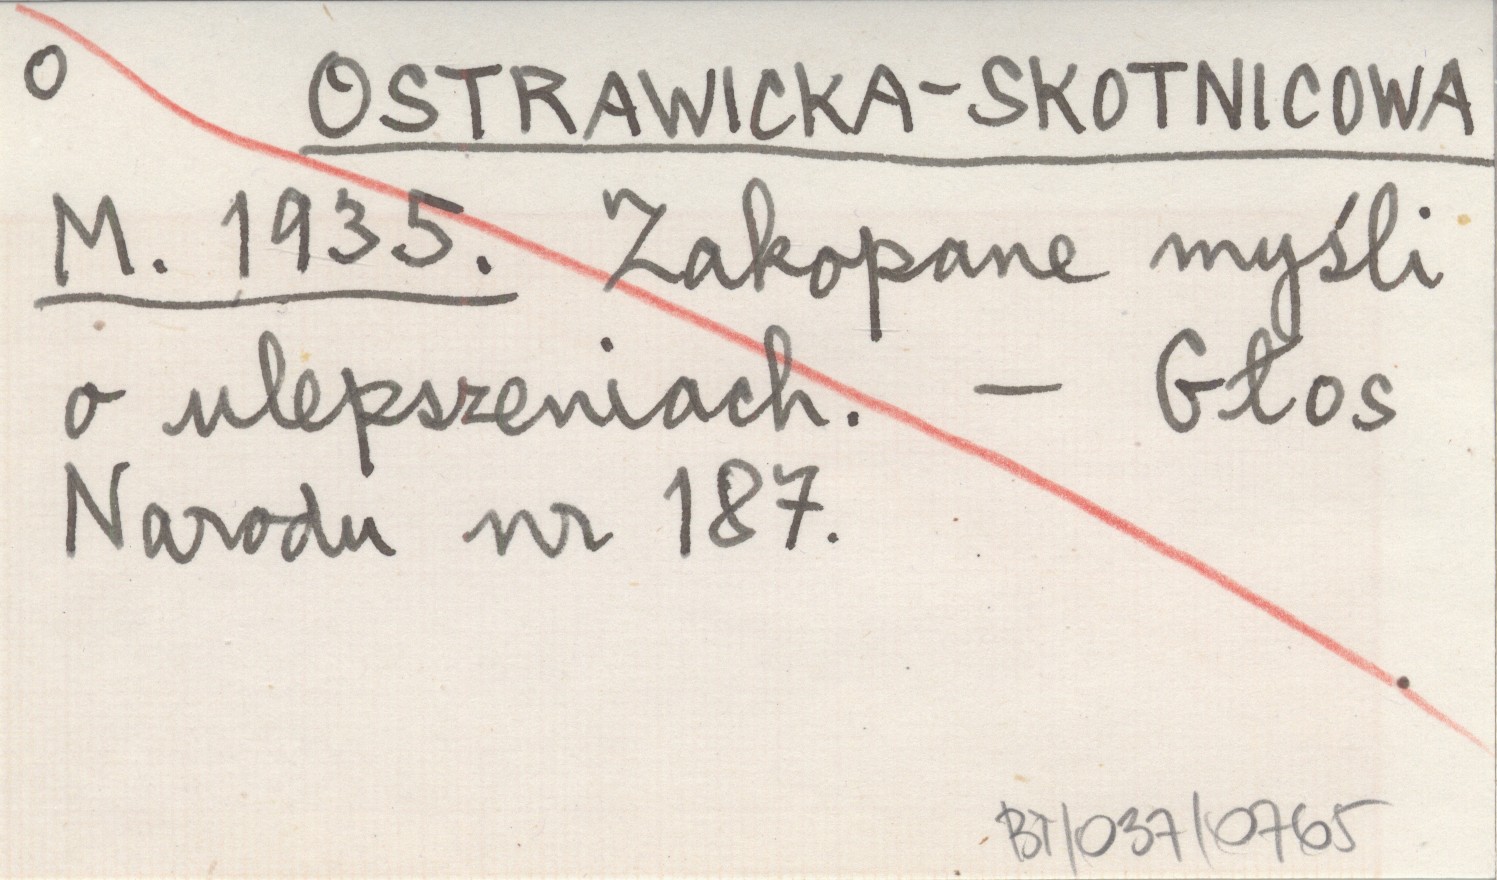 O OSTRAWICKA-SKOTNICOWA
M. 1935. Zakopane myśli
o ulepszeniach. — Głos
Narodu nr 187.
BT/037/0765